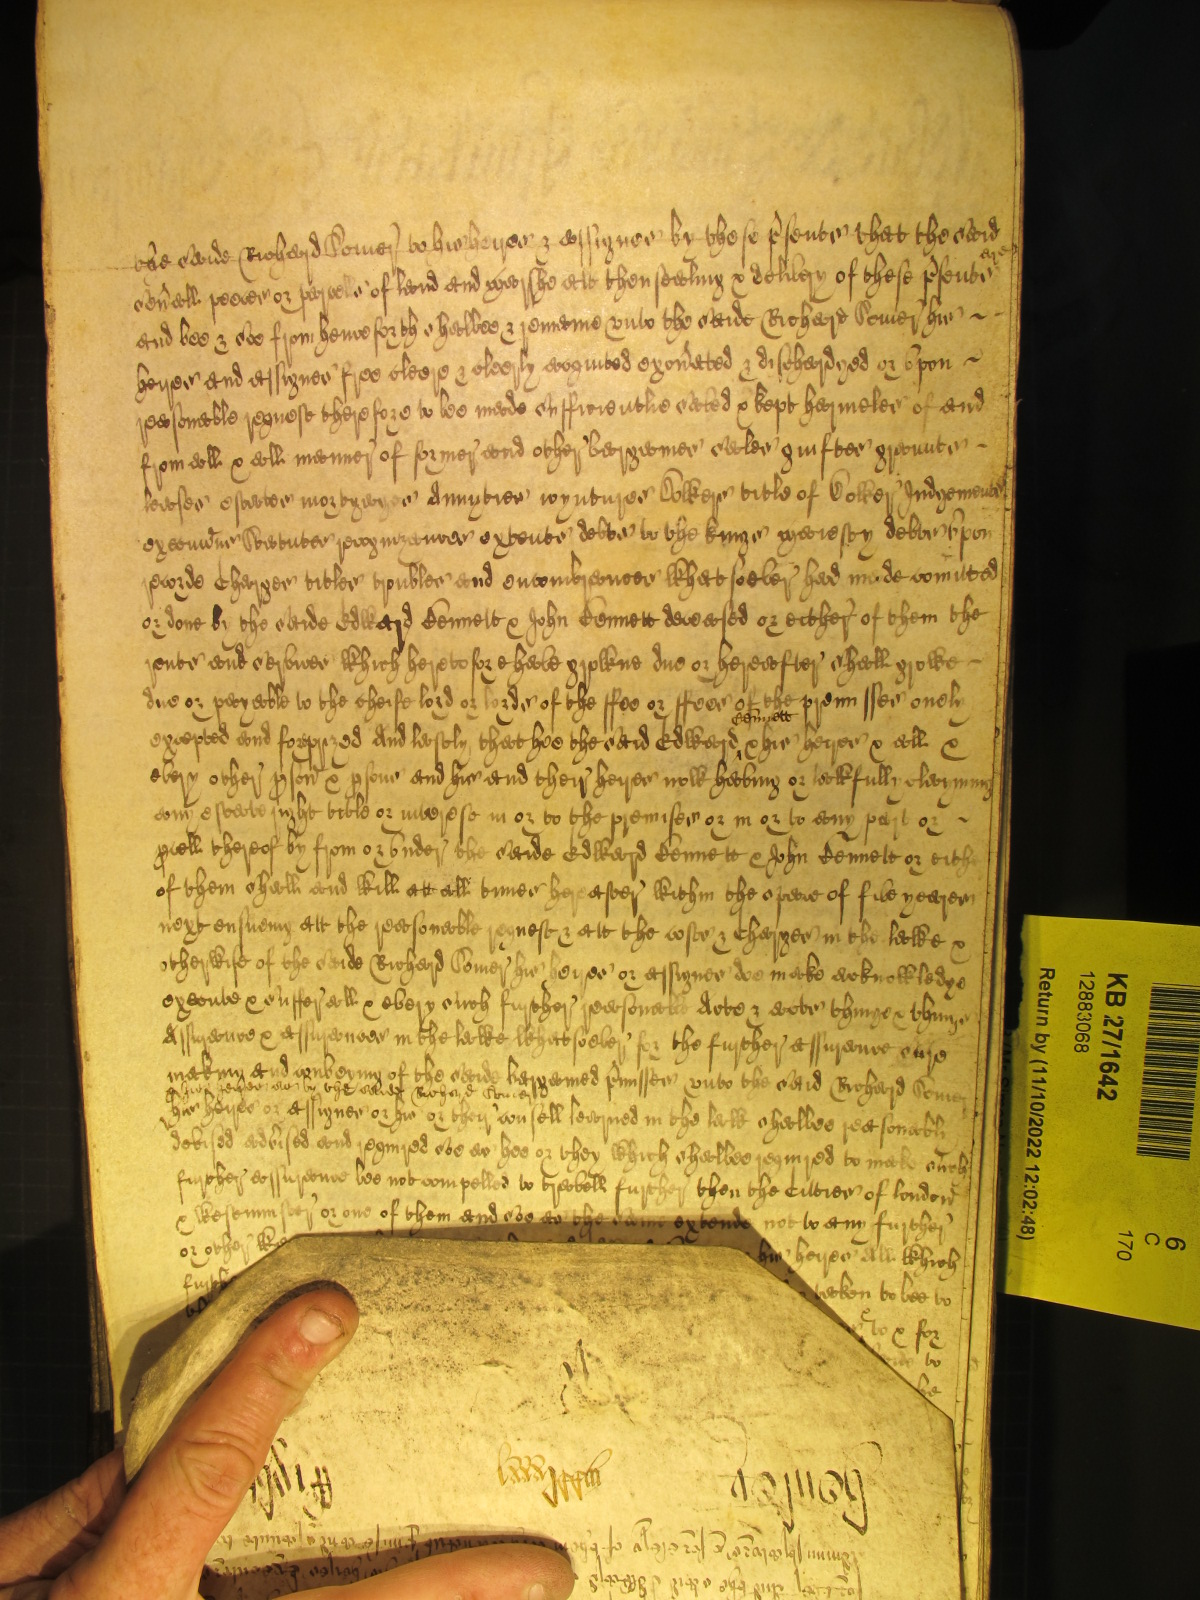 the saide Richard Somer to his heires & assignes by these p'sentes that the said
sev'all peeces or parcells of land and marshe att thensealing & delivery of these p'sentes are
and bee & soe from henceforth shalbee & remaine unto the saide Richard Somer his ~
heires and assignes free cleere & cleerly acquited exon'ated & dischardged or upon ~
reasonable request therefore to bee made sufficientlie saved & kept harmeles of and
from all & all manner of former and other bargaines sales guiftes grauntes ~
leases estates mortgages Annuities ioyntures Dowers title of Dower Judgementes
execuc'ns Statutes recognizances extentes debtes to the kinges Maiesty debtes upon
recorde Charges titles troubles and encombrances whatsoever had made comitted
or done by the saide Edward Bennett & John Bennett deceased or either of them the
rentes and services which heretofore have growne due or hereafter shall growe ~
due or payable to the cheife lord or lordes of the ffee or ffees of the premisses onely
excepted and foreprized And lastly that hee the said Edward Bennett & his heires & all &
every other p'son & p'sons and his and their heires now having or lawfully clayming
any estate right title or interest in or to the premises or in or to any part or ~
p'cell thereof by from or under the saide Edward Bennett & John Bennett or eithe
of them shall and will att all times hereafter within the space of five yeares
next ensueing att the reasonable request & att the costes & Charges in the lawe &
otherwise of the saide Richard Somer his heires or assignes doe make acknowledge
execute & suffer all & every such further reasonable Acte & actes thinge & thinges
Assurance & assurances in the lawe whatsoever for the further assurance sure
making and conveying of the saide bargained p'misses unto the said Richard Somer
by the saide Richard Somer
his heires or assignes or his or their counsell learned in the law shalbee reasonably
devised advised and required soe as hee or they which shalbee required to make such
further assurance bee not compelled to travell further then the Citties of london
& Westminster or one of them and soe as the same extende not to any further
or other his heires All which
furthe taken to bee to
to & for
to
be
KB 27/1642
12883068
Return by (11/10/2022 12:02:48)
6
C
170